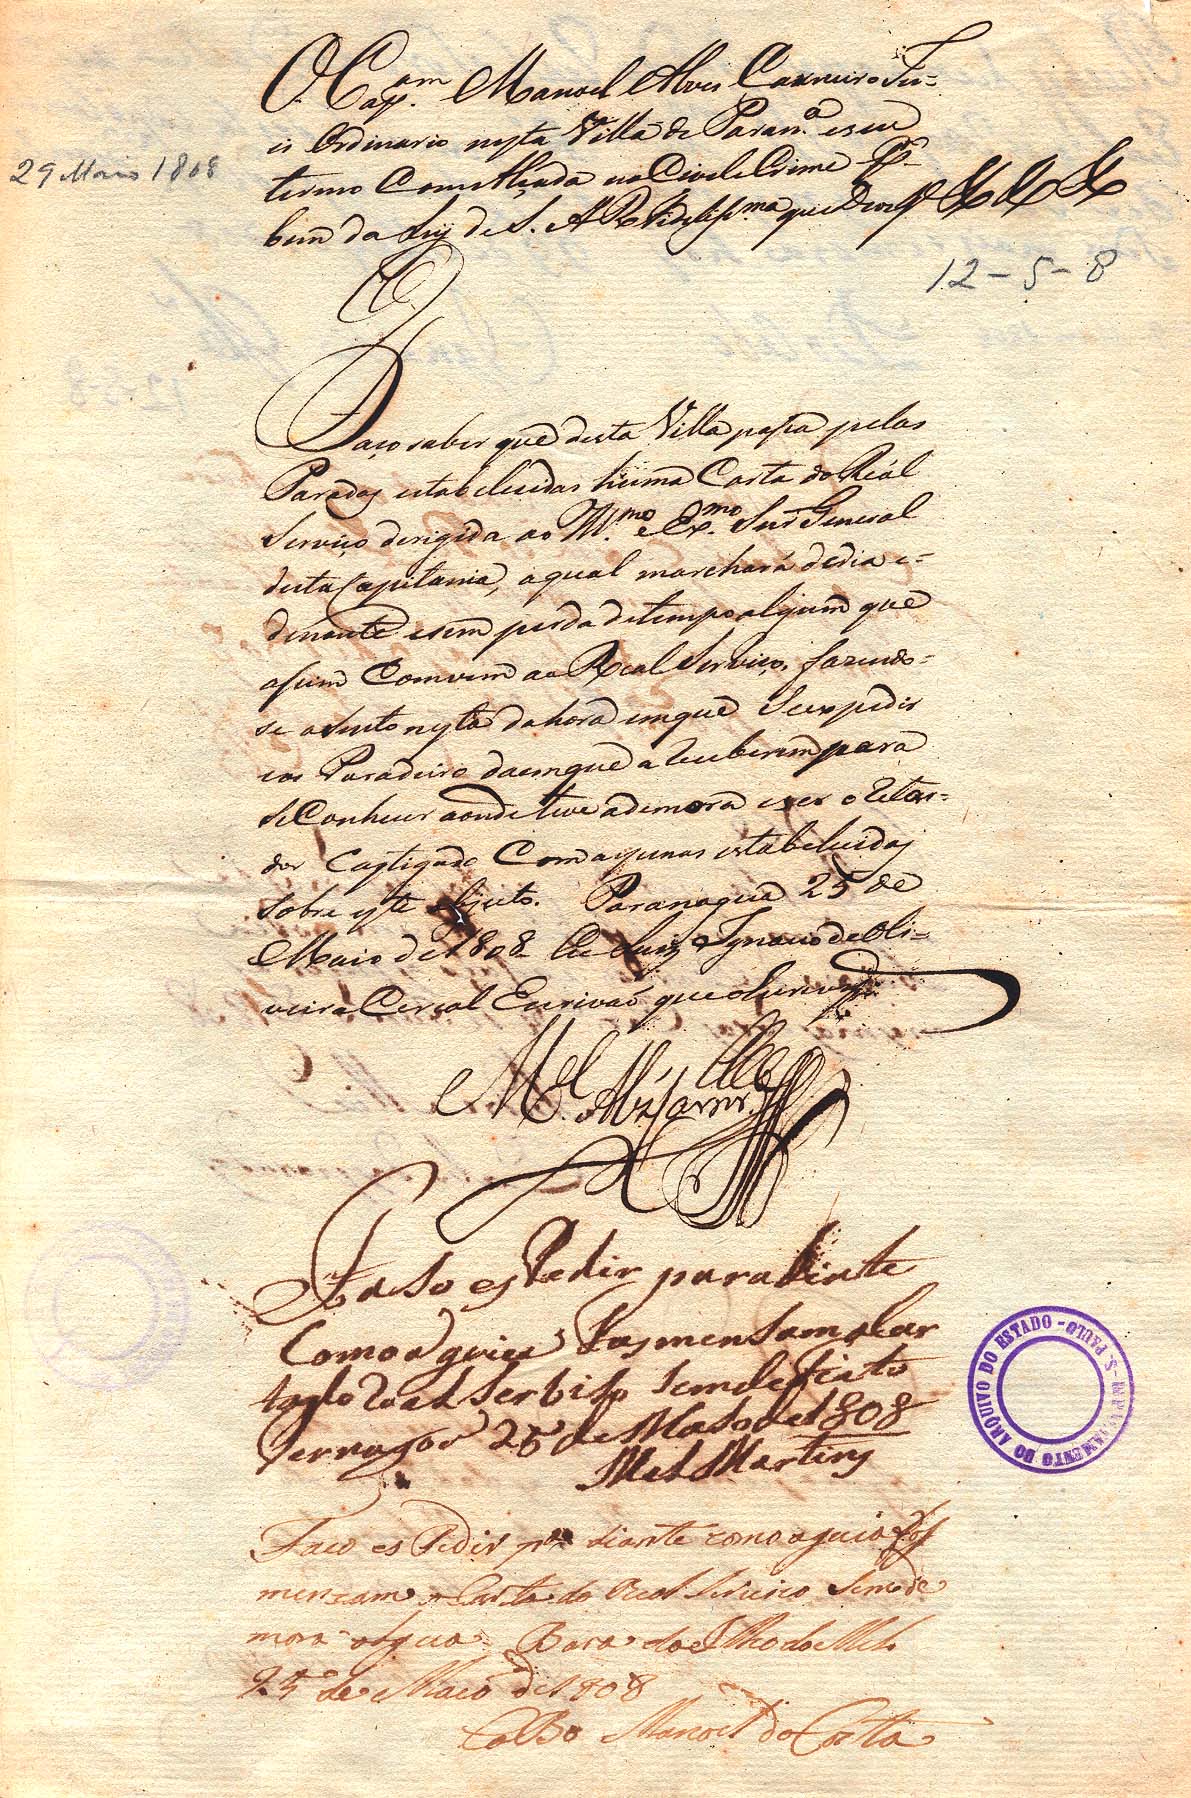 O Cap.am Manoel Alves Carneiro Ju=
is Ordinario nesta Villa de Paran.a e seu
29 Maio 1808
termo Com Alçada no Civel e Crime pr.
bem da Ley de S. A R Fidelissma que Deos g.e
12-5-8
Faço saber que desta Villa passa pelas
Paradas estabelecidas huma Carta do Reál
Serviço derigida ao Ill.mo e Ex.mo Snr General
desta Capitania, a qual marchará de dia e=
de noute e sem perda de tempo algum que
assim Comvem ao Real Serviço, fazendo=
se asento nesta da hora em que Se expedir
e os Paradeiro da em que a Receberem para
se Conhecer aonde teve a demora e ser o Retar=
dor Castigado Com as penas estabelecidas
Sobre este objecto. Paranaguá 25 de
Maio de 1808 Eu Luiz Ignacio de Oli=
veira Cercal Escrivaõ que o Escrevy
M.el Alz Carnr.o
Faso es Pedir para diante
Como a guia Vas men Sam a Car
ta do Real Serbiso Sem
25 de Maso de 1808
Mel Martins
Faco es Pedir p.a diante como a guia fas
menzam a Carta do Real Servico Sem de
mora algua Bara do
25 de Maio de 1808
Cabo Manoel do Costa
DEPARTAMENTO DO ARQUIVO DO ESTADO - S. PAULO -